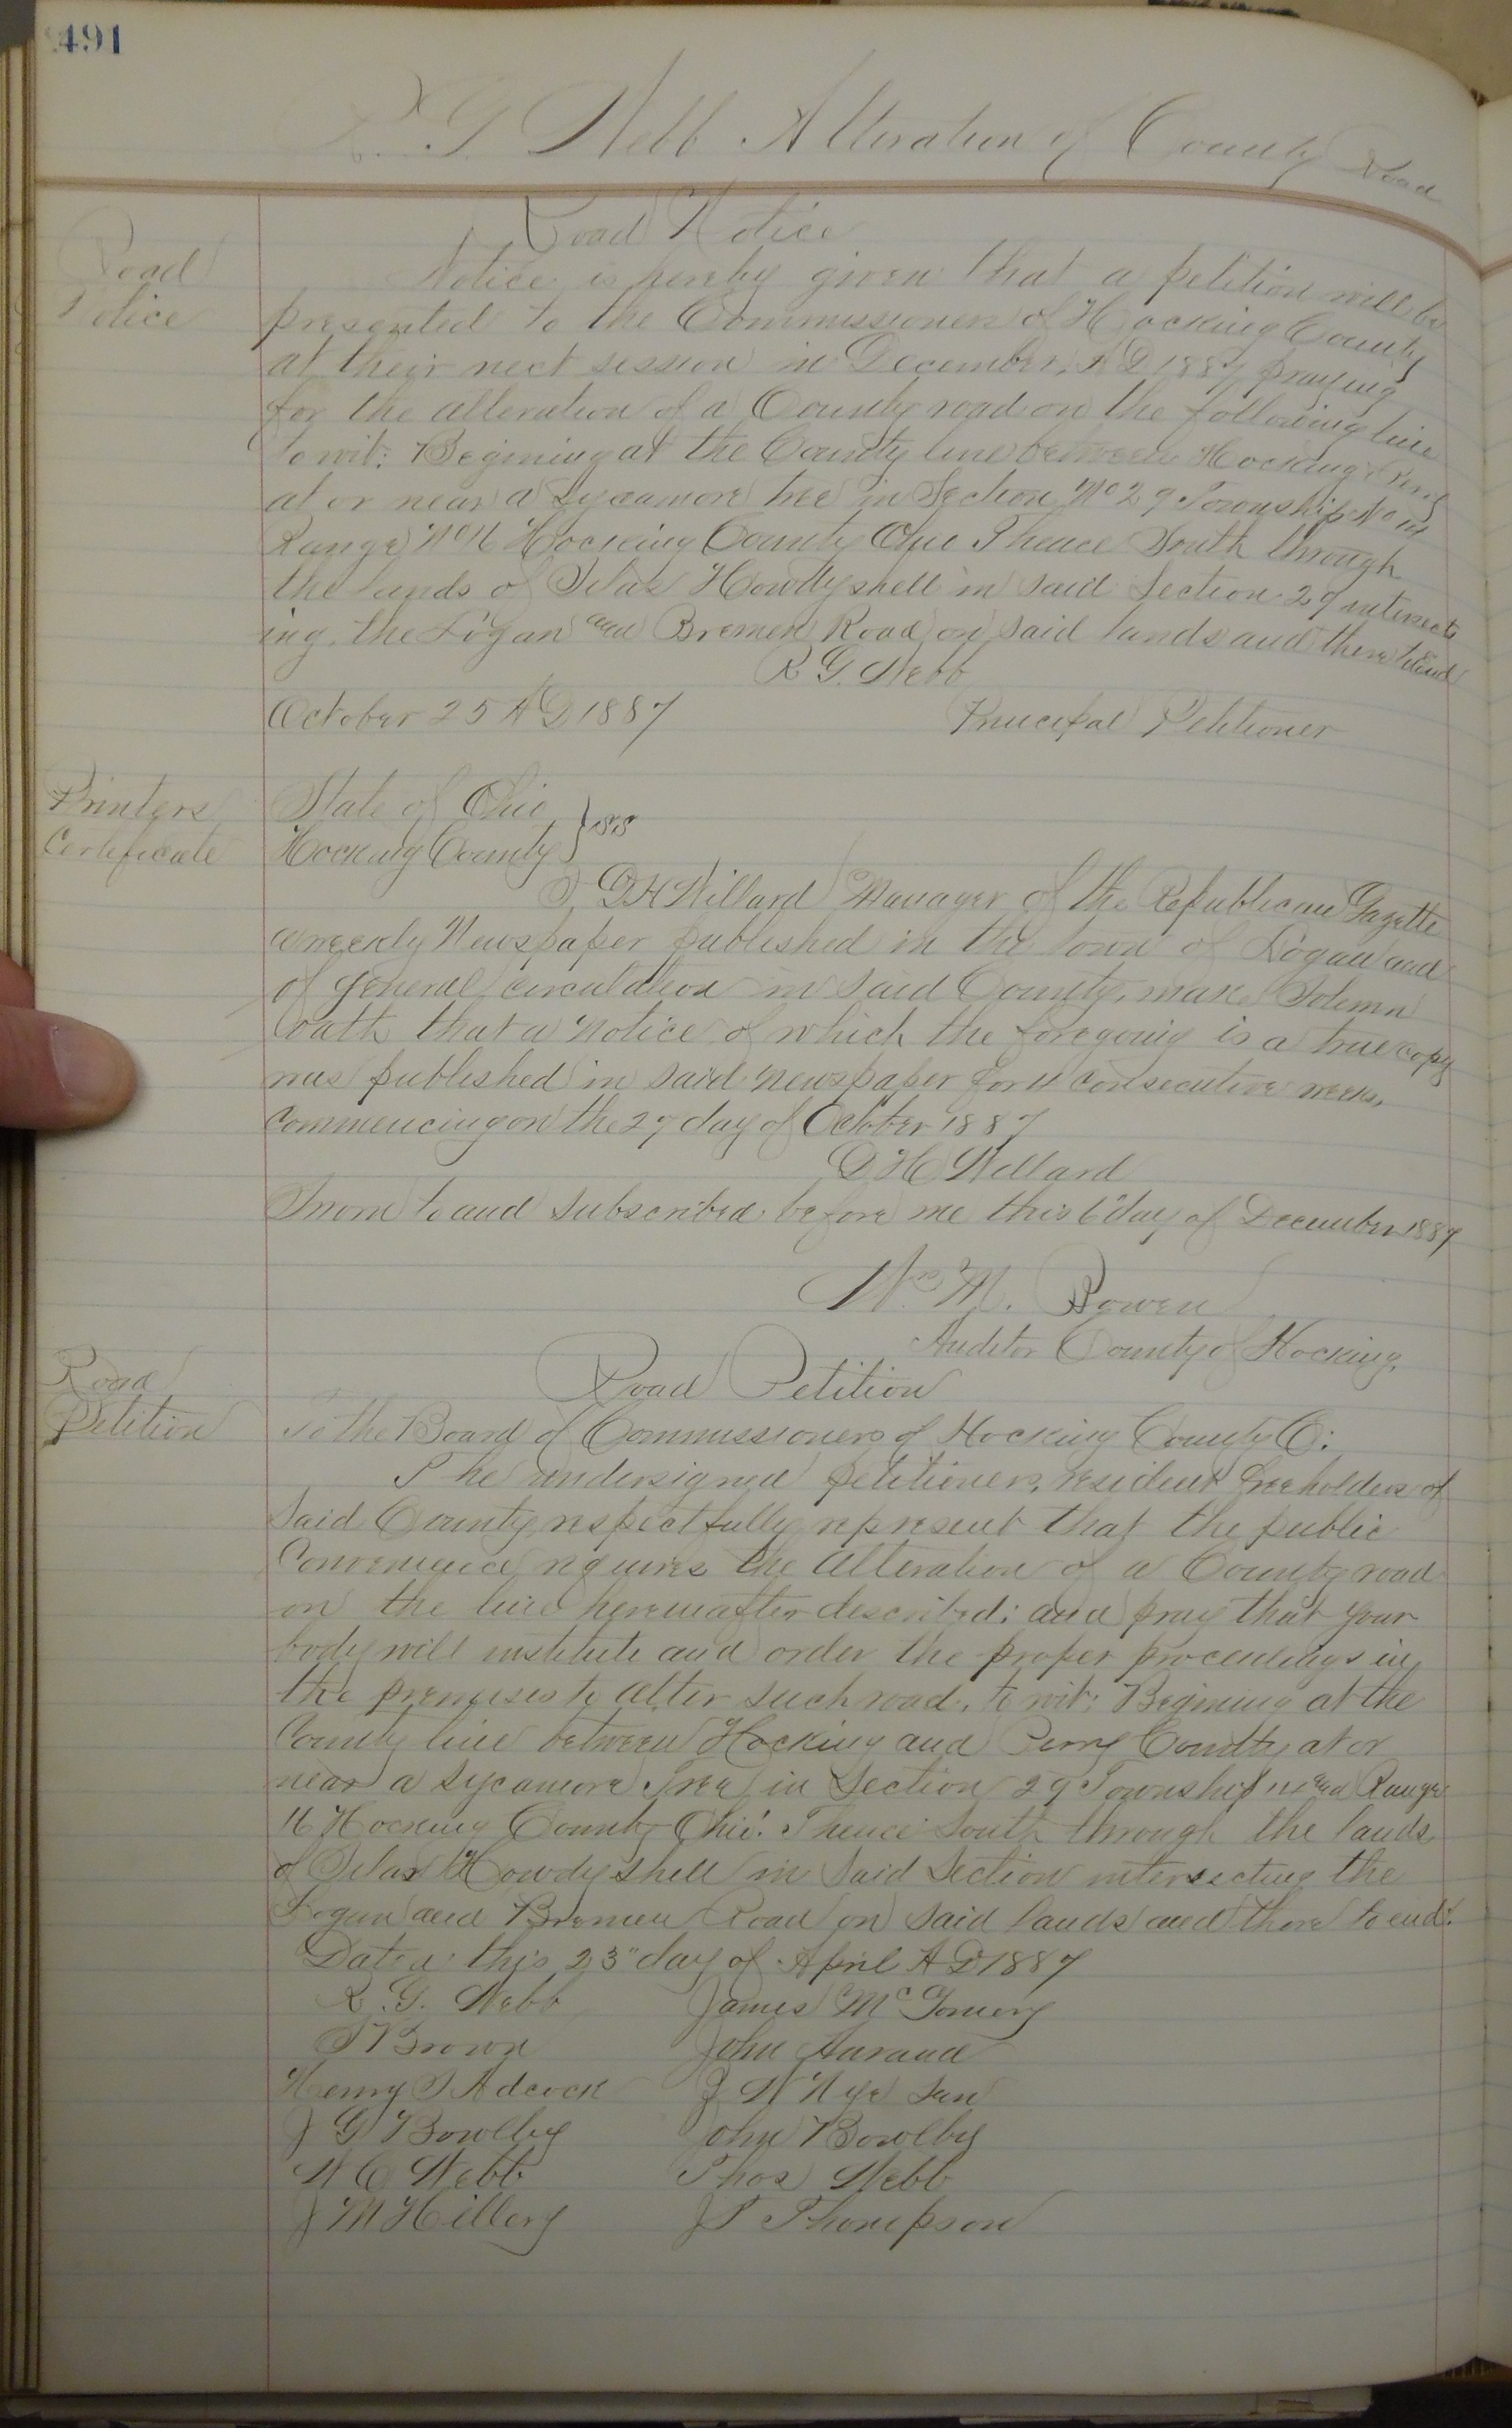 491
R. G. Webb Alteration of County Road
Road Notice
Road
Notice
Notice is hereby given that a petition will be
presented to the Commissioners of Hocking County
at their next session in December, A D 1887 praying
for the alteration of a County road on the following line
to wit: Begining at the County line between Hocking & Perry
at or near a Sycamore tree in Section No 29 Township No 14
Range No 16 Hocking County Ohio Thence South through
the lands of Silas Howdyshell in said Section 29 intersect
ing the Logan and Bremen Road on said lands and there to End
R G. Webb
October 25 A D 1887 Principal Petitioner
Printers
Certificate
State of Ohio
Hocking County } SS
I, D H Willard Manager of the Republican Gazette
a weekly Newspaper published in the town of Logan and
of general circulation in said County, make Solemn
oath that a Notice of which the foregoing is a true copy
was published in said newspaper for 4 consecutive weeks,
commencing on the 27 day of October 1887
D H Willard
Sworn to and subscribed before me this 6" day of December 1887
Wm M. Bowen
Auditor County of Hocking.
Road
Petition
Road Petition
To the Board of Commissioners of Hocking County O:
The undersigned petitioners, resident freeholders of
said County respectfully represent that the public
Convenience requires the alteration of a County road
on the line hereinafter described: and pray that your
body will institute and order the proper proceedings in
the premises to alter such road, to wit: Begining at the
County line between Hocking and Perry County at or
near a Sycamore Tree in Section 29 Township 14 and Range
16 Hocking County Ohio: Thence South through the lands
of Silas Howdyshell in said Section intersecting the
Logan and Bremen Road on said lands and there to end.
Dated this 23" day of April A D 1887
R. G. Webb James McGomery
Brown John
Henry S Adcock J W Nye Sen
J G Bowlby John Bowlby
W C Webb Thos Webb
J M Hillery J T Thompson